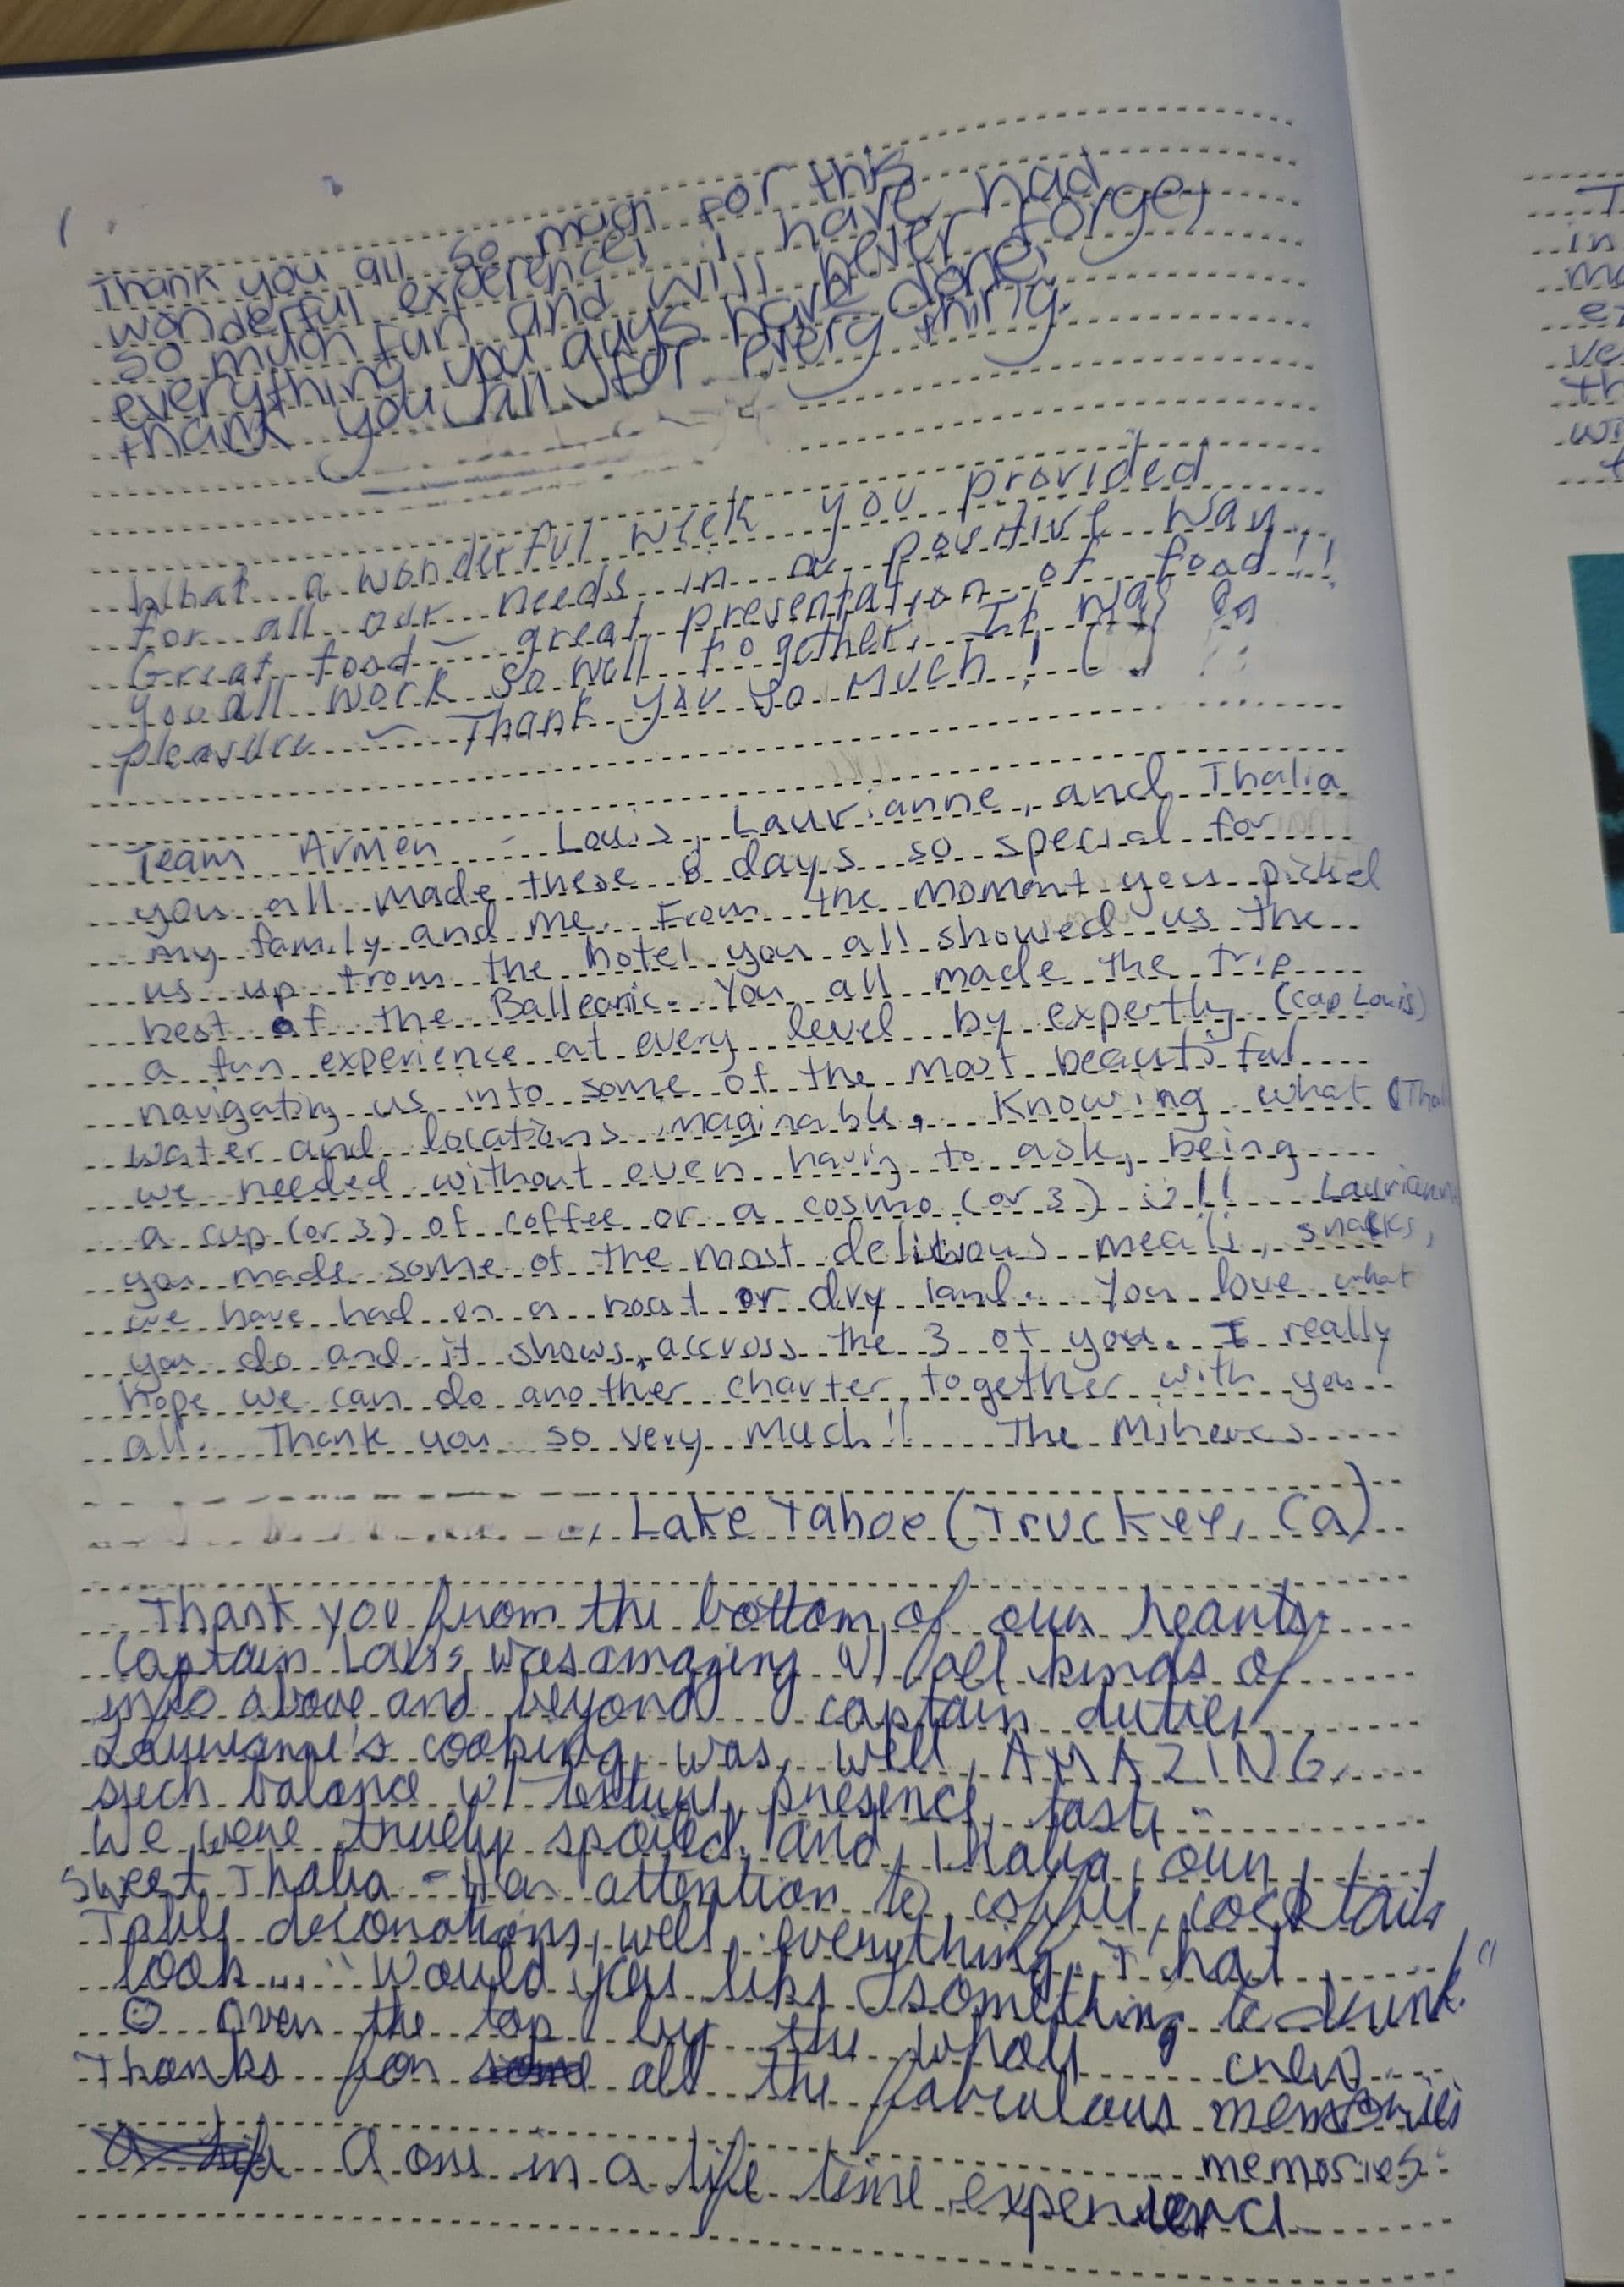 Thank you all so much for this
wonderful experence! I have had
so much fun and will never forget
everything you guys have done.
thank you all for every thing.
What a wonderful week you provided
for all our needs in a positive way...
Great food - great presentation of food!!
You all work so well together. It was a
pleasure - Thank you so much!
Team Armen - Louis, Laurianne, and Thalia
you all made these 8 days so special for
my family and me. From the moment you picked
us up from the hotel you all showed us the
best of the Balleanic. You all made the trip
a fun experience at every level by expertly (cap Louis)
navigating us into some of the most beautiful
water and locations imaginable. Knowing what (Thal
we needed without even having to ask, being
a cup (or 3) of coffee or a cosmo (or 3) ☺!! Laurianne
you made some of the most delitious meals, snacks,
we have had on a boat or dry land. You love what
you do and it shows accross the 3 of you. I really
hope we can do another charter together with you
all. Thank you so very much!! The
Lake Tahoe (Truckee, Ca)
Thank you from the bottom of our hearts.
Captain Louis was amazing w/ all kinds of
info above and beyond captain duties
Laurianne's cooking was, well, AMAZING,
such balance w/ texture, presence, taste..
We were truely spoiled. And, Thalia, our
sweet Thalia - Her attention to coffee, cocktails
Table decorations, well, everything. That
look... "Would you like something to drink."
☺ Over the top by the whole crew
Thanks for all the fabulous memories
memories
A one in a life time experience